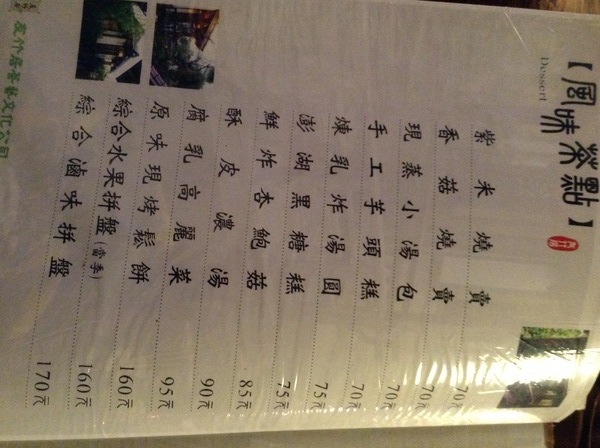 【風味茶點】
Dessert
紫米燒賣 70元
香菇燒賣 70元
現蒸小湯包 70元
手工芋頭糕 70元
煉乳炸湯圓 75元
澎湖黑糖糕 75元
鮮炸杏鮑菇 85元
酥皮濃湯 90元
腐乳高麗菜 95元
原味現烤鬆餅 160元
綜合水果拼盤(當季) 160元
綜合滷味拼盤 170元
友竹居茶藝文化公司